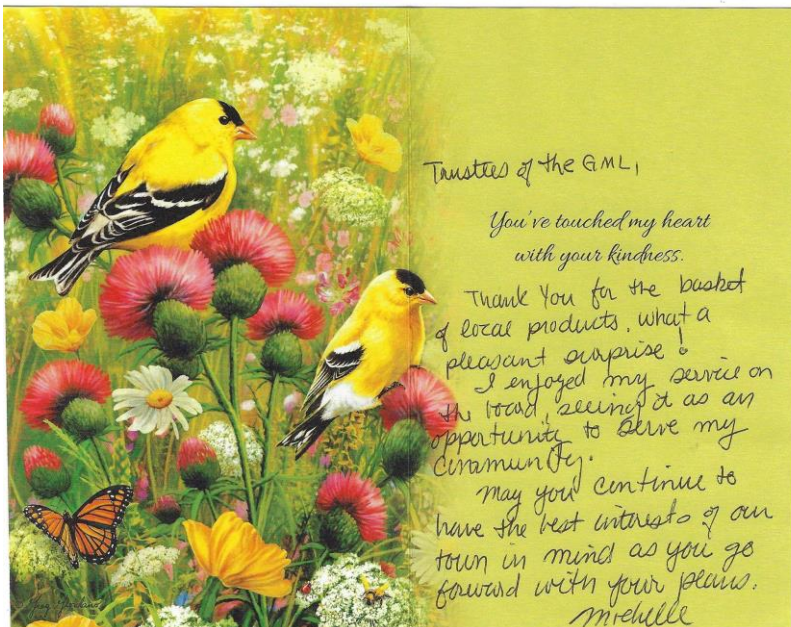 Trustees of the GML,
You've touched my heart
with your kindness.
Thank You for the basket
of local products, what a
pleasant surprise!
I enjoyed my service on
the board, seeing it as an
opportunity to serve my
community.
May you continue to
have the best interests of our
town in mind as you go
forward with your plans.
Michelle